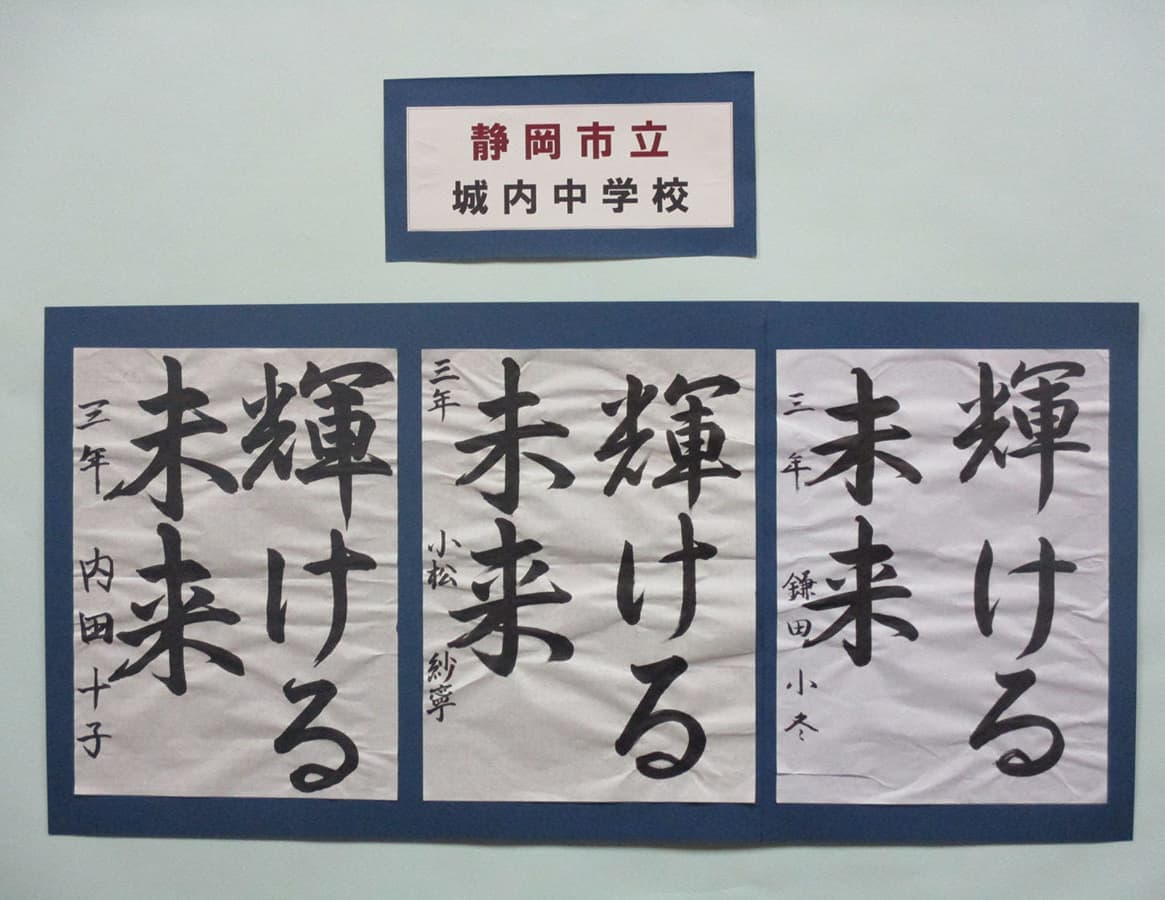 静岡市立
城内中学校
輝ける
未来
三年 鎌田小冬
輝ける
未来
三年 小松 紗寧
輝ける
未来
三年 内田十子